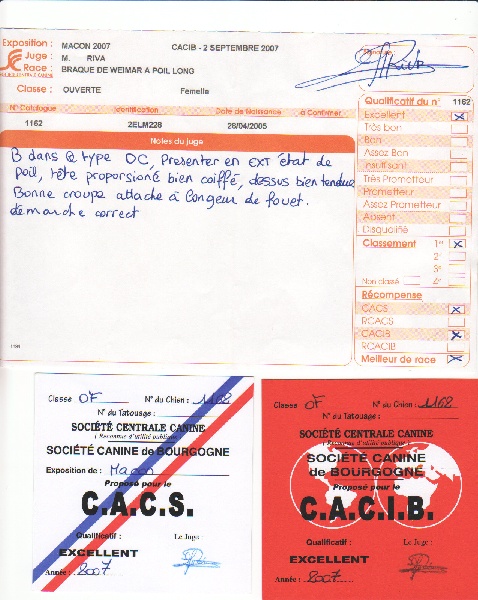 Exposition : MACON 2007 CACIB - 2 SEPTEMBRE 2007
Juge : M. RIVA
Race : BRAQUE DE WEIMAR A POIL LONG
Classe : OUVERTE Femelle
N° Catalogue Identification Date de Naissance a Confirmer
1162 2ELM228 26/04/2005
Notes du juge
B dans le type OC, Presenter en EXT état de
Poil, tête proporsioné bien coiffé, dessus bien tendue
Bonne croupe attache à longeur de fouet.
démarche correct
Qualificatif du n° 1162
Excellent X
Très bon
Bon
Assez Bon
Insuffisant
Très Prometteur
Prometteur
Assez Prometteur
Absent
Disqualifié
Classement 1er X
2e
3e
Non classé 4e
Récompense
CACS X
RCACS
CACIB X
RCACIB
Meilleur de race X
Classe OF N° du Chien : 1168
N° du Tatouage :
SOCIÉTÉ CENTRALE CANINE
( Reconnue d'utilité publique )
SOCIÉTÉ CANINE de BOURGOGNE
Exposition de : Macon
Proposé pour le
C.A.C.S.
Qualificatif : Le Juge :
EXCELLENT
Année : 2007
Classe : OF N° du Chien : 1168
N° du Tatouage :
SOCIÉTÉ CENTRALE CANINE
( Reconnue d'utilité publique )
SOCIÉTÉ CANINE
de BOURGOGNE
Proposé pour le
C.A.C.I.B.
Qualificatif : Le Juge :
EXCELLENT
Année : 2007